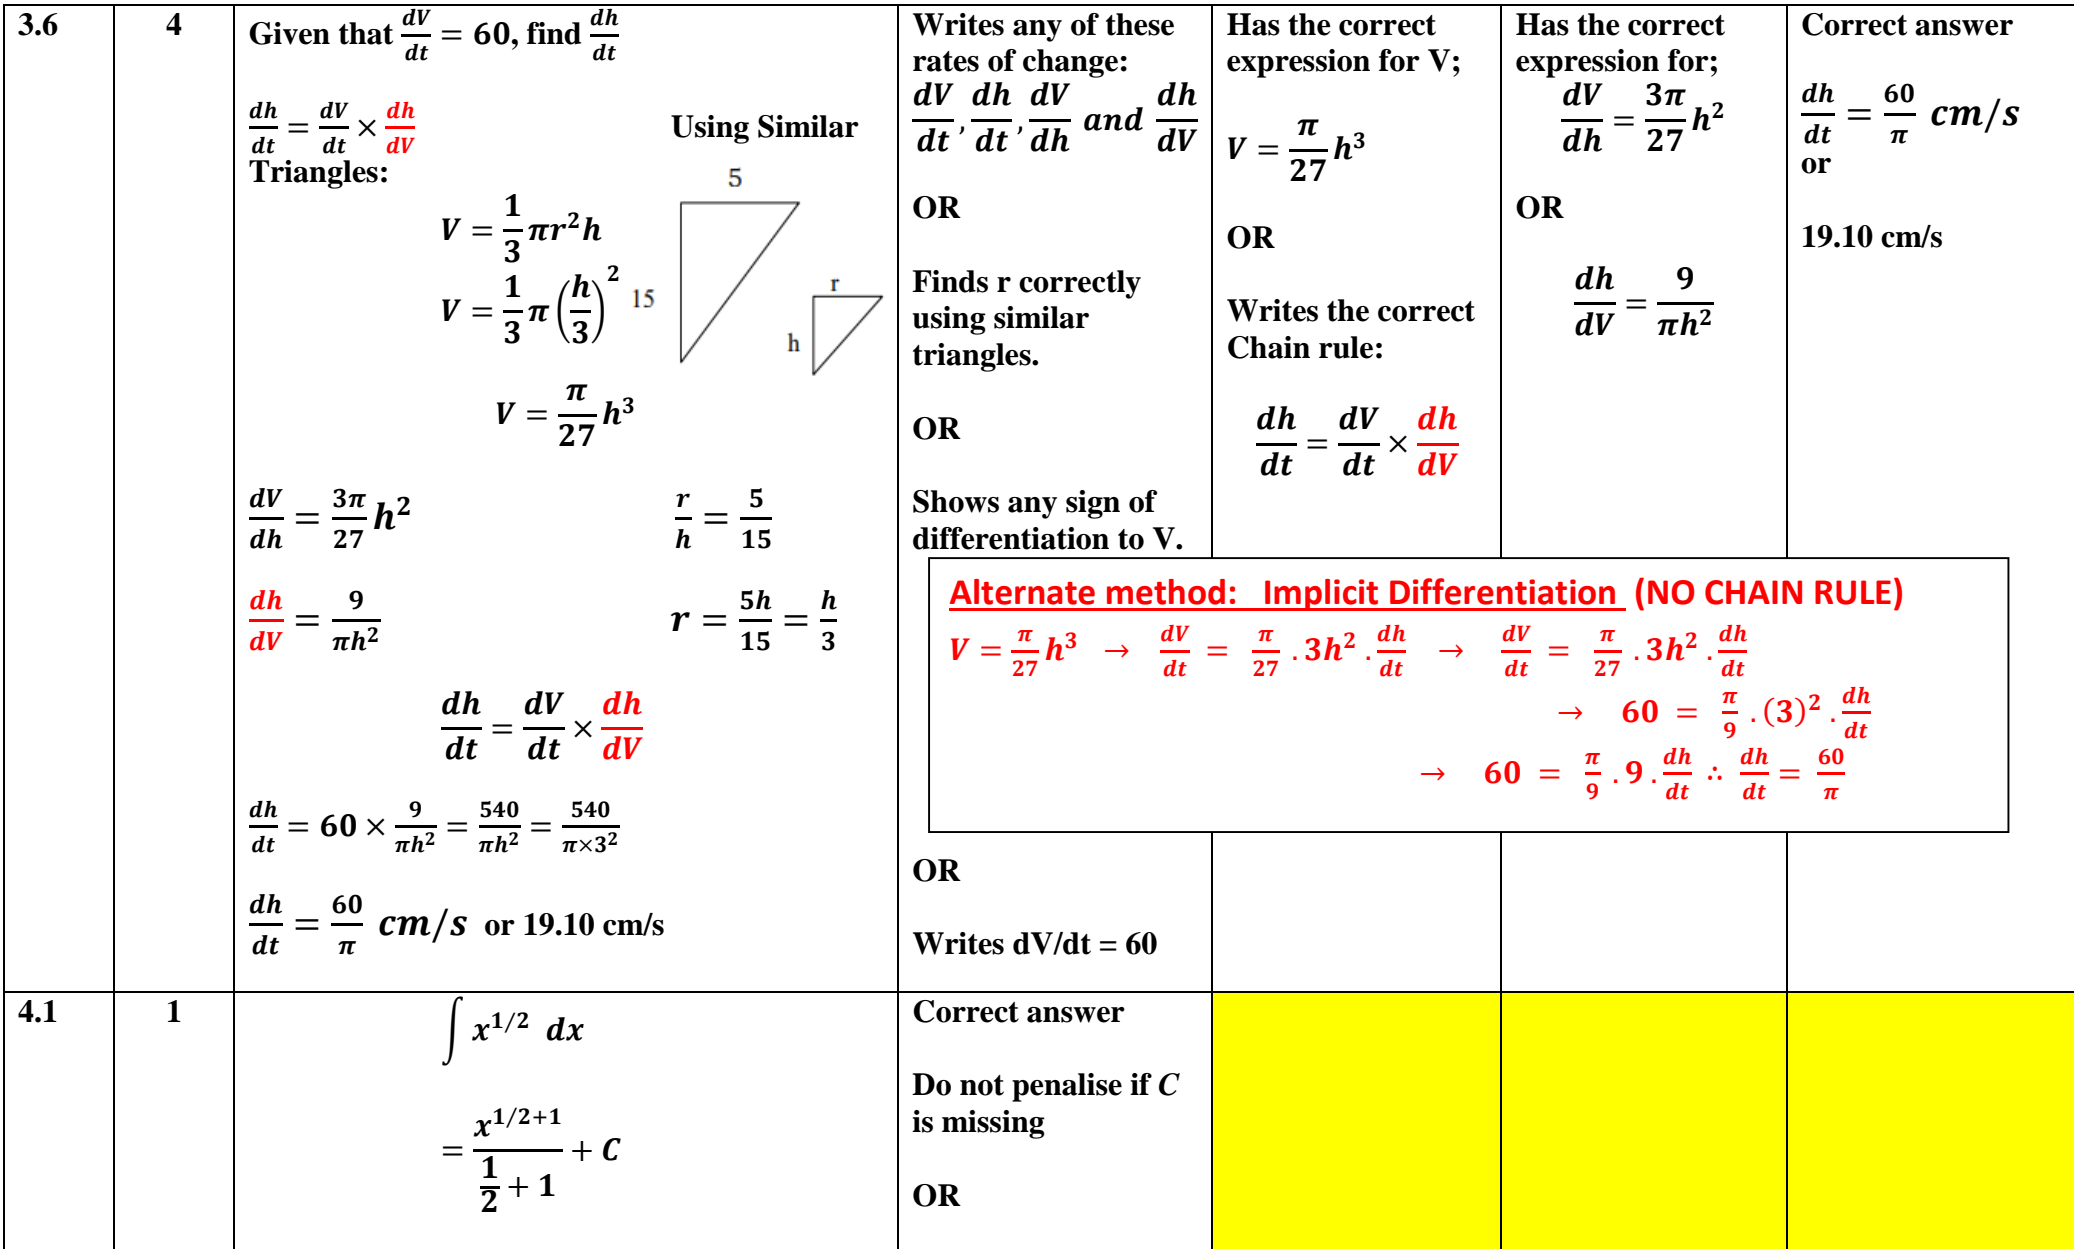 3.6
4
Given that dV/dt = 60, find dh/dt
dh/dt = dV/dt × dh/dV
Using Similar
Triangles:
V = 1/3 πr²h
V = 1/3 π(h/3)²
5
15
r
h
V = π/27 h³
dV/dh = 3π/27 h²
r/h = 5/15
dh/dV = 9/πh²
r = 5h/15 = h/3
dh/dt = dV/dt × dh/dV
dh/dt = 60 × 9/πh² = 540/πh² = 540/π×3²
dh/dt = 60/π cm/s or 19.10 cm/s
Writes any of these
rates of change:
dV/dt, dh/dt, dV/dh and dh/dV
OR
Finds r correctly
using similar
triangles.
OR
Shows any sign of
differentiation to V.
OR
Writes dV/dt = 60
Has the correct
expression for V;
V = π/27 h³
OR
Writes the correct
Chain rule:
dh/dt = dV/dt × dh/dV
Has the correct
expression for;
dV/dh = 3π/27 h²
OR
dh/dV = 9/πh²
Correct answer
dh/dt = 60/π cm/s
or
19.10 cm/s
Alternate method: Implicit Differentiation (NO CHAIN RULE)
V = π/27 h³ → dV/dt = π/27 . 3h² . dh/dt → dV/dt = π/27 . 3h² . dh/dt
→ 60 = π/9 . (3)² . dh/dt
→ 60 = π/9 . 9 . dh/dt ∴ dh/dt = 60/π
4.1
1
∫ x^1/2 dx
= x^1/2+1 / 1/2 + 1 + C
Correct answer
Do not penalise if C
is missing
OR